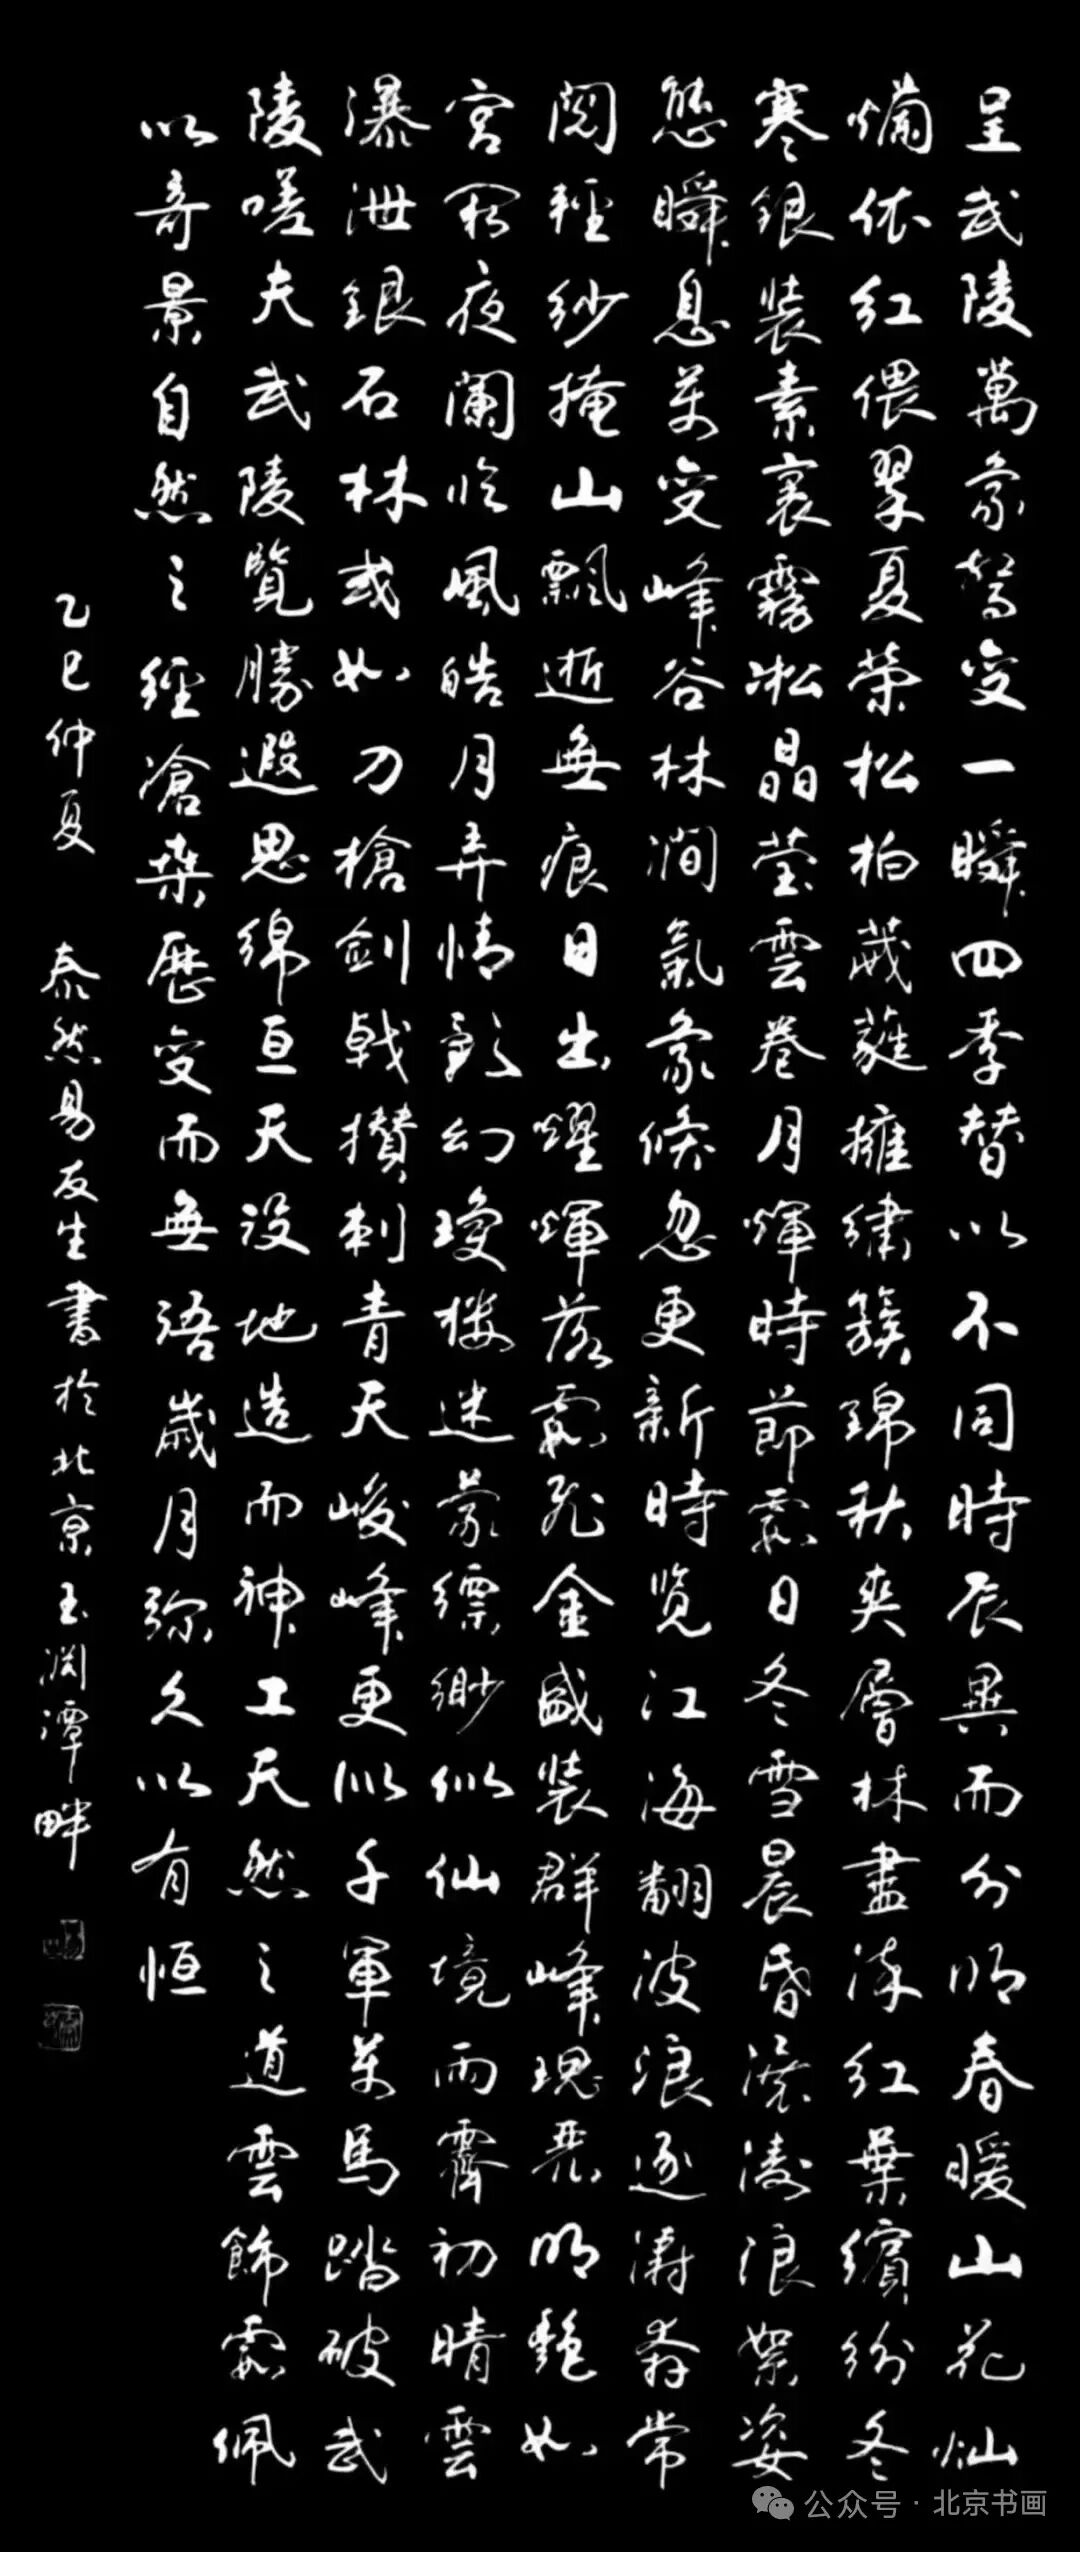 呈武陵萬象驚变一瞬四季替以不同時辰異而分明春暖山花灿
爛依红偎翠夏荣松柏葳蕤擁繡簇錦秋爽層林盡染红葉繽纷冬
寒銀装素裹霧凇晶莹雲卷月輝時節霞日冬雪晨昏滚涛浪絮姿
態瞬息萬变峰谷林澗氣象倏忽更新時览江海翻波浪逐濤奔常
閲輕纱掩山飄逝無痕日出耀輝落霞飛金盛装群峰瑰丽明艷如
宫闕夜阑临风皓月弄情影幻瓊楼迷蒙缥缈似仙境雨霽初晴雲
瀑泄銀石林或如刀槍剑戟攢刺青天峻峰更似千軍萬馬踏破武
陵嗟夫武陵覽勝遐思绵亘天设地造而神工天然之道雲飾霞佩
以奇景自然之經滄桑歷变而無語歲月弥久以有恒
乙巳仲夏 泰然易友生書於北京玉渊潭畔
公众号·北京书画